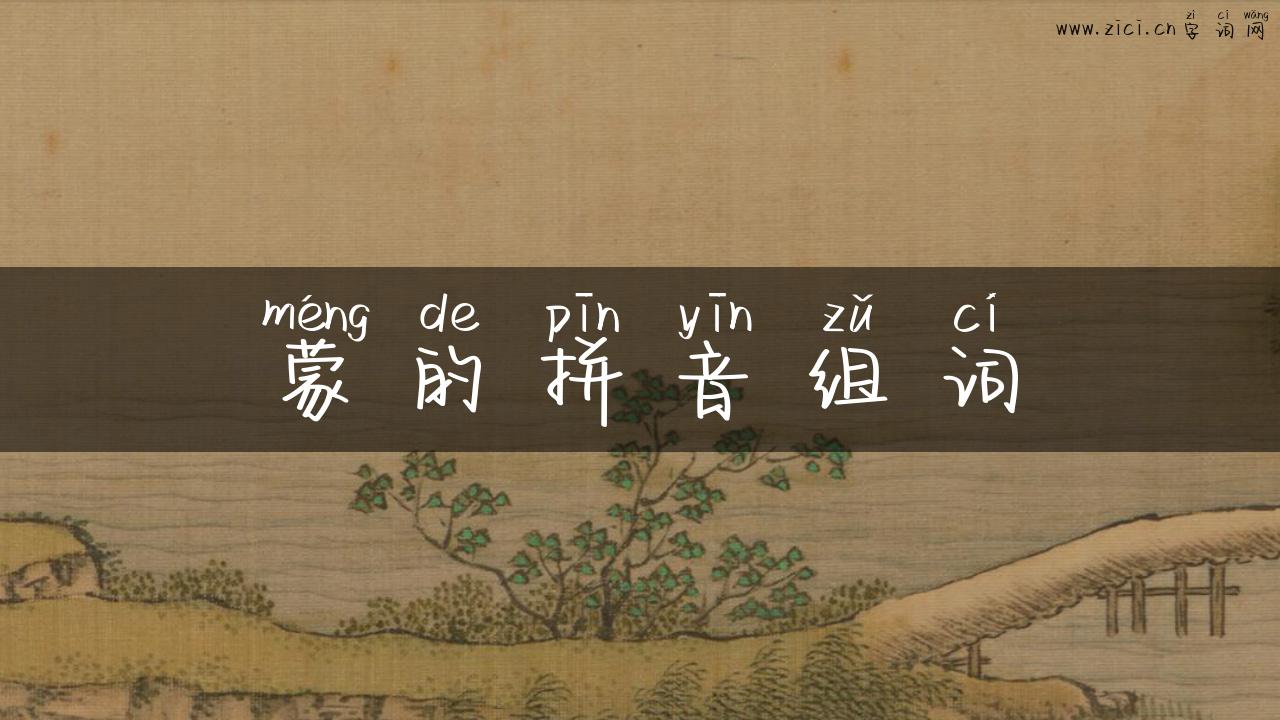 zì cí wǎng
www.zici.cn 字 词 网
méng de pīn yīn zǔ cí
蒙 的 拼 音 组 词